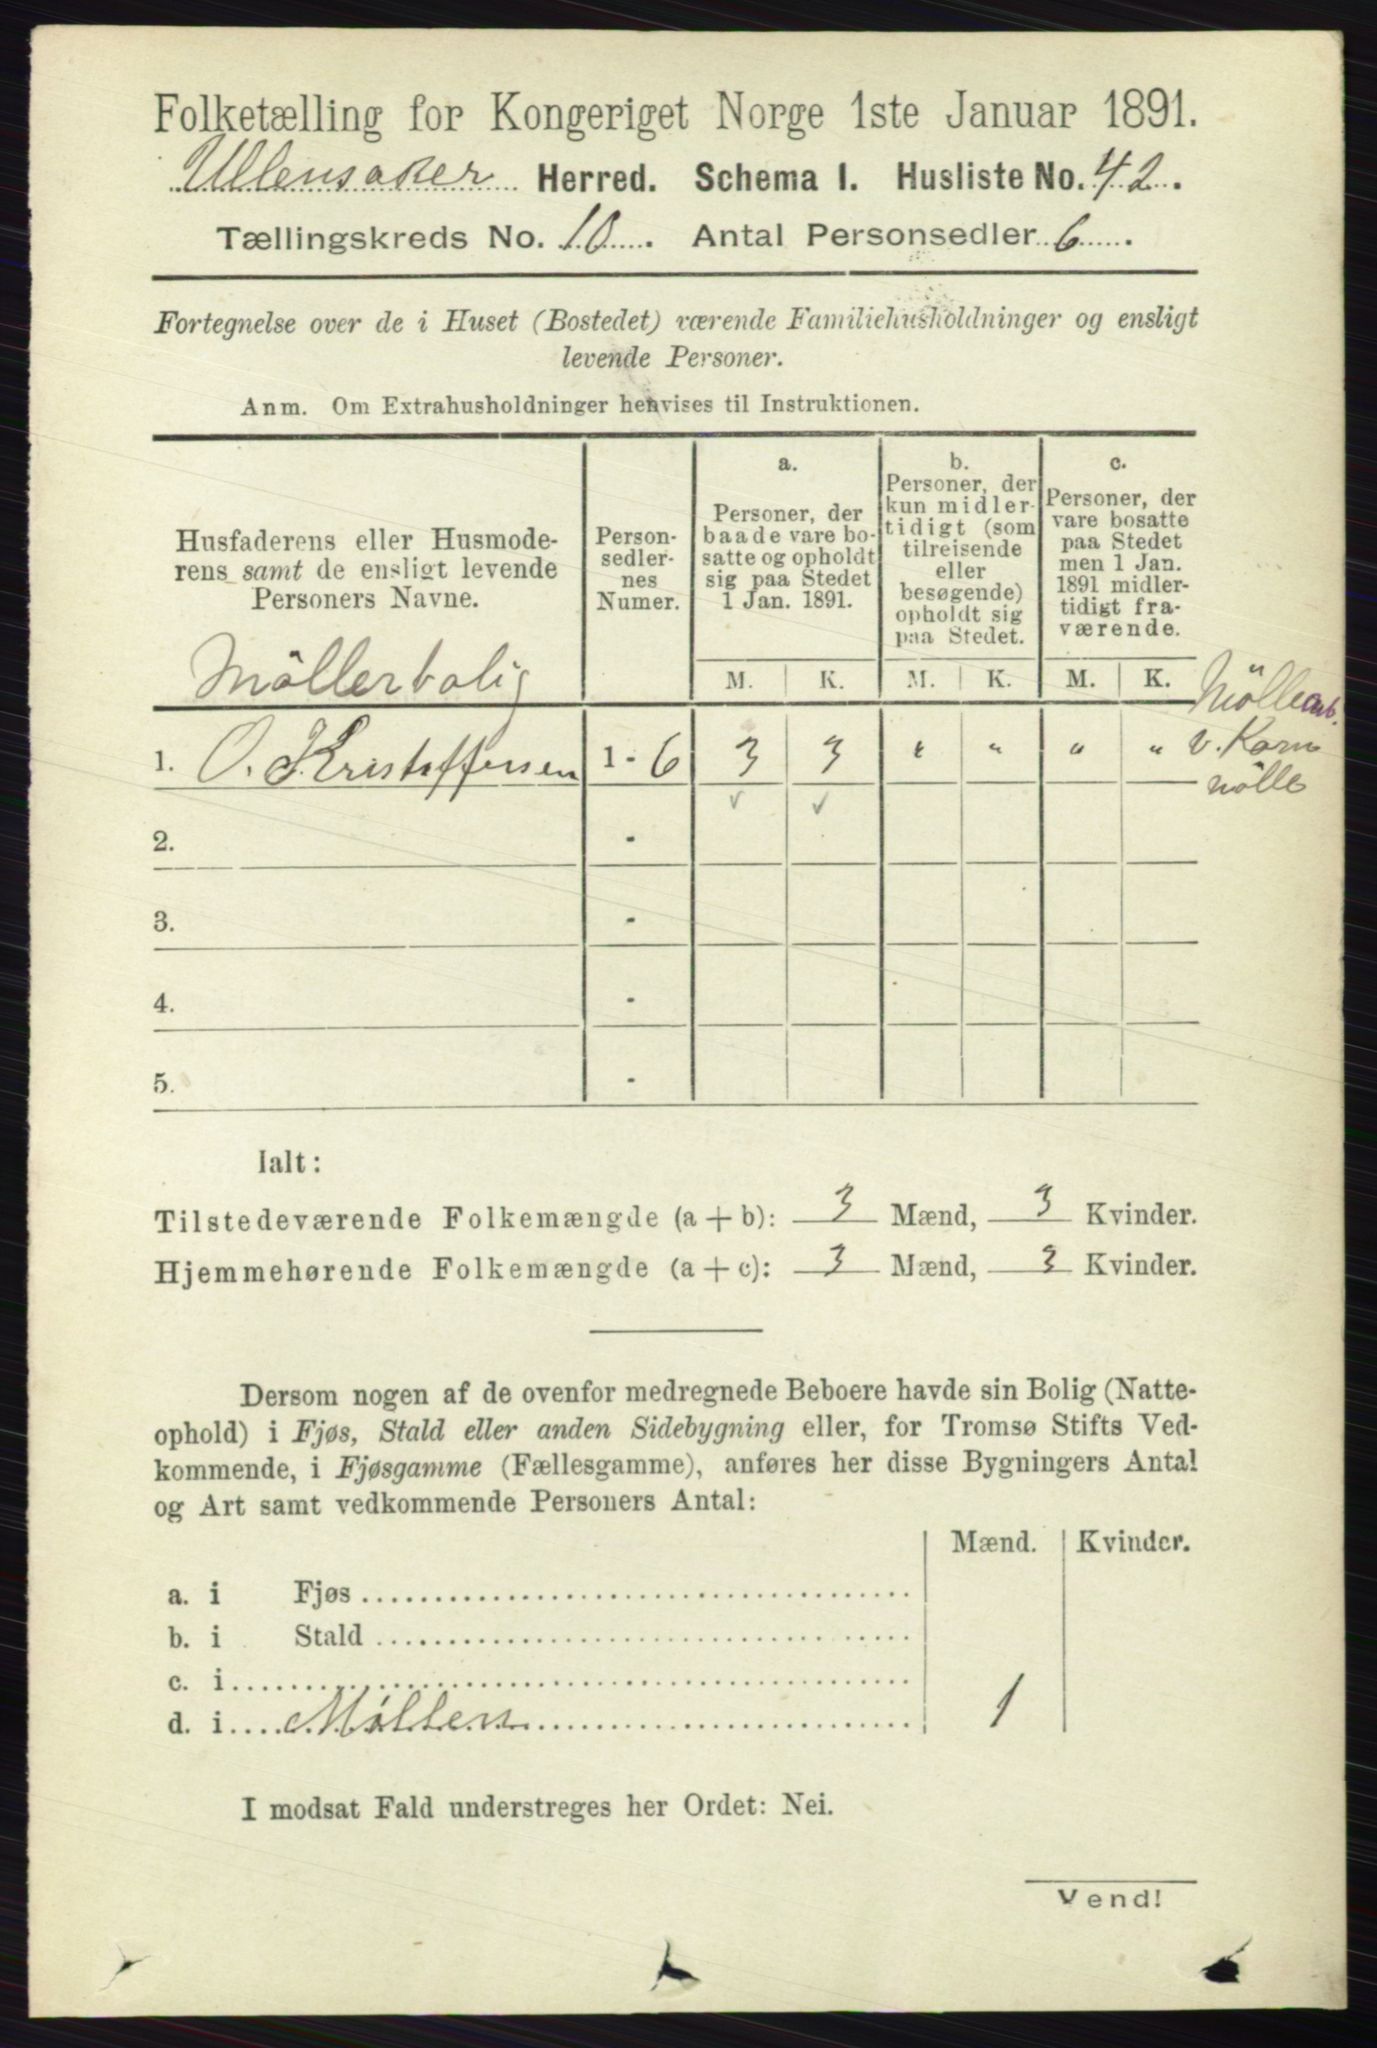 Folketælling for Kongeriget Norge 1ste Januar 1891.
Ullensaker Herred. Schema I. Husliste No. 42.
Tællingskreds No. 10. Antal Personsedler 6.
Fortegnelse over de i Huset (Bostedet) værende Familiehusholdninger og ensligt
levende Personer.
Anm. Om Extrahusholdninger henvises til Instruktionen.
Husfaderens eller Husmode-
rens samt de ensligt levende
Personers Navne.
Möllerbolig
Person-
sedler-
nes
Numer.
a.
Personer, der
baade vare bo-
satte og opholdt
sig paa Stedet
1 Jan. 1891.
M. K.
b.
Personer, der
kun midler-
tidigt (som
tilreisende
eller
besøgende)
opholdt sig
paa Stedet.
M. K.
c.
Personer, der
vare bosatte
paa Stedet
men 1 Jan.
1891 midler-
tidigt fra-
værende.
M. K.
Möllearb.
v. Korn
mölle
1. O. Kristoffersen 1 - 6 3 3 " " " "
✓ ✓
2. -
3. -
4. -
5. -
Ialt:
Tilstedeværende Folkemængde (a + b): 3 Mænd, 3 Kvinder.
Hjemmehørende Folkemængde (a + c): 3 Mænd, 3 Kvinder.
Dersom nogen af de ovenfor medregnede Beboere havde sin Bolig (Natte-
ophold) i Fjøs, Stald eller anden Sidebygning eller, for Tromsø Stifts Ved-
kommende, i Fjøsgamme (Fællesgamme), anføres her disse Bygningers Antal
og Art samt vedkommende Personers Antal:
Mænd. Kvinder.
a. i Fjøs
b. i Stald
c. i
d. i Möllen 1
I modsat Fald understreges her Ordet: Nei.
Vend!